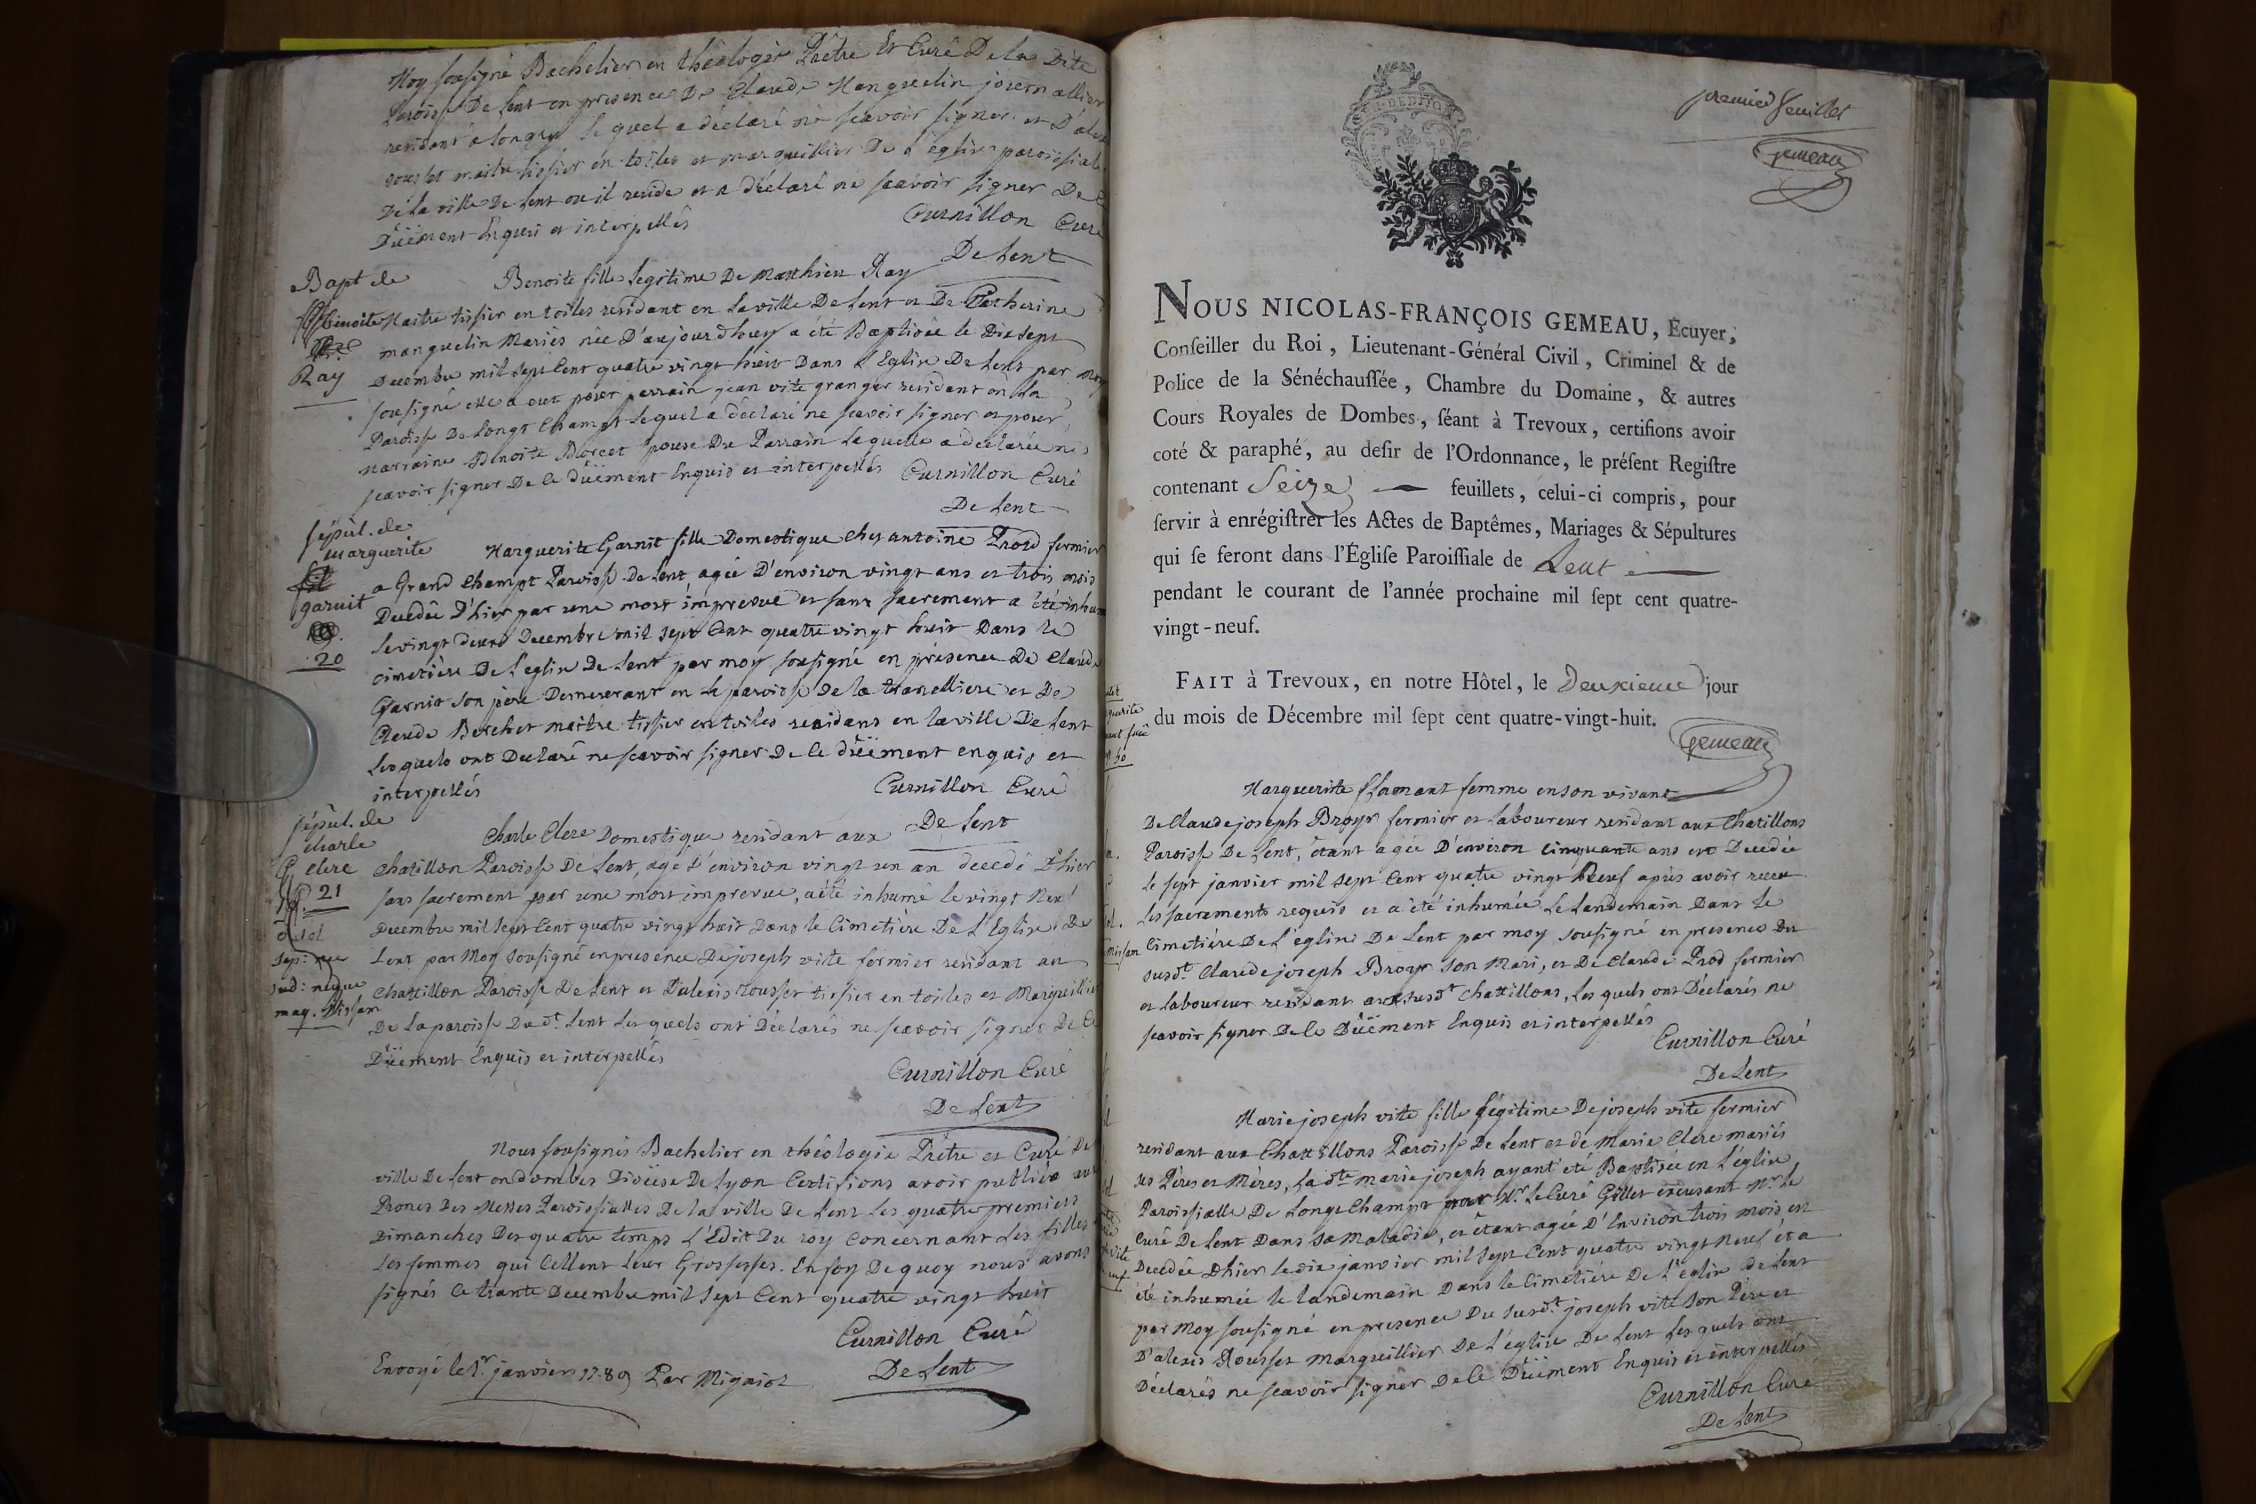 Moy sousigné Bachelier en théologie Prêtre Et Curé De la Dite
Paroisse De Lent en presence De Claude Manguelin journallier
residant a Longch lequel a déclaré ne sçavoir signer et D'alexis
rousset maitre tissier en toiles et marguillier De l'église paroissiale
De la ville De Lent ou il reside et a déclaré ne sçavoir signer De ce
Düement Enquis et interpellés
Curnillon Curé
De Lent
Bapt de
Benoite
Ray
Benoite fille legitime De Matthieu Ray
Maitre tissier en toiles residant en la ville De Lent et De Catherine
manguelin Mariés née D'aujourdhuy a été Baptisée le Dixsept
Decembre mil sept Cent quatre vingt huit Dans l'Eglise De Lent par moy
sousigné elle a eut pour parrain jean vite granger residant en la
Paroisse De Longt Champt lequel a déclaré ne sçavoir signer et pour
marraine Benoite Borcet epouse Du Parrain laquelle a déclarée ne
sçavoir signer De ce düement Enquis et interpellés
Curnillon Curé
De Lent
sépul. de
marguerite
garnit
20
Marguerite Garnit fille Domestique Chez antoine Prost fermier
a Grand Champt Paroisse De Lent, agée D'environ vingt ans et trois mois
Decedée D'hier par une mort imprevue et sans sacrement a été inhumée
le vingt deux Decembre mil sept Cent quatre vingt huit Dans le
cimetière De L'eglise De Lent par moy sousigné en présence De Claude
Garnit son père Demeurant en la paroisse de la tranclliere et De
Claude Berchet maitre tissier en toiles residans en la ville De Lent
Lesquels ont Declaré ne sçavoir signer De ce düement enquis et
interpellés
Curnillon Curé
De Lent
sépul. de
charle
clere
21
Charle Clere Domestique residant aux
Chatillon Paroisse De Lent, agé d'environ vingt un an decedé D'hier
sans sacrement par une mort imprevue, a été inhumé le vingt Neuf
Decembre mil sept Cent quatre vingt huit Dans le Cimetière De L'Eglise De
Lent par Moy sousigné en presence De joseph vite fermier residant au
Chattillon Paroisse De Lent et D'alexis Rousset tissier en toiles et Marguillier
De la paroisse Du dt. Lent Lesquels ont Déclarés ne sçavoir signer De Ce
Düement Enquis et interpellés
Curnillon Curé
De Lent
Nous sousignés Bachelier en théologie Prêtre et Curé De
ville De Lent en dombes Diocèse De Lyon Certifions avoir publiée aux
Prones Des Messes Paroissialles De la ville De Lent Les quatre premiers
Dimanches Des quatre temps L'Edit Du roy Concernant Les filles
Les femmes qui Cellent Leur Grossesses. En foy De quoy nous avons
signés Ce trante Decembre mil sept Cent quatre vingt huit
Curnillon Curé
De Lent
Envoyé le 1r. janvier 1789 Par Mignot
premier feuillet
gemeau
NOUS NICOLAS-FRANÇOIS GEMEAU, Écuyer,
Conſeiller du Roi, Lieutenant-Général Civil, Criminel & de
Police de la Sénéchauſſée, Chambre du Domaine, & autres
Cours Royales de Dombes, ſéant à Trevoux, certifions avoir
coté & paraphé, au deſir de l'Ordonnance, le préſent Regiſtre
contenant Seize feuillets, celui-ci compris, pour
ſervir à enrégiſtrer les Actes de Baptêmes, Mariages & Sépultures
qui ſe feront dans l'Égliſe Paroiſſiale de Lent
pendant le courant de l'année prochaine mil ſept cent quatre-
vingt-neuf.
FAIT à Trevoux, en notre Hôtel, le Deuxieme jour
du mois de Décembre mil ſept cent quatre-vingt-huit.
gemeau
Marguerite flamant femme en son vivant
De Claude joseph Broyr fermier et laboureur residant aux Chatillons
Paroisse De Lent, étant agée D'environ Cinquante ans est Decedée
le sept janvier mil sept Cent quatre vingt Neuf après avoir receu
les sacrements requis et a été inhumée Le Landemain Dans le
Cimetière De L'église De Lent par moy sousigné en presence Du
susdt. Claude joseph Broyr son Mari, et De Claude Prod fermier
et laboureur residant aux susdt Chattillons, Les quels ont Déclarés ne
sçavoir signer De Ce Düement Enquis et interpellés
Curnillon Curé
De Lent
Marie joseph vite fille légitime De joseph vite fermier
residant aux Chattillons Paroisse De Lent et de Marie Clere mariés
ses Pères et Mères, La dte marie joseph ayant eté Baptisée en L'église
Paroissialle De Longt Champt par Mr. Le Curé Gillet excusant Mr. Le
Curé De Lent Dans sa Maladie, et étant agée D'Environ trois mois est
Decedée Dhier le dix janvier mil sept Cent quatre vingt Neuf et a
été inhumée le landemain Dans le Cimetière De L'église de Lent
par Moy sousigné en presence Du susdt. joseph vite son Père et
D'alexis Rousset Marguillier De L'église De Lent Les quels ont
Déclarés ne sçavoir signer De Ce Düement Enquis et interpellés
Curnillon Curé
De Lent